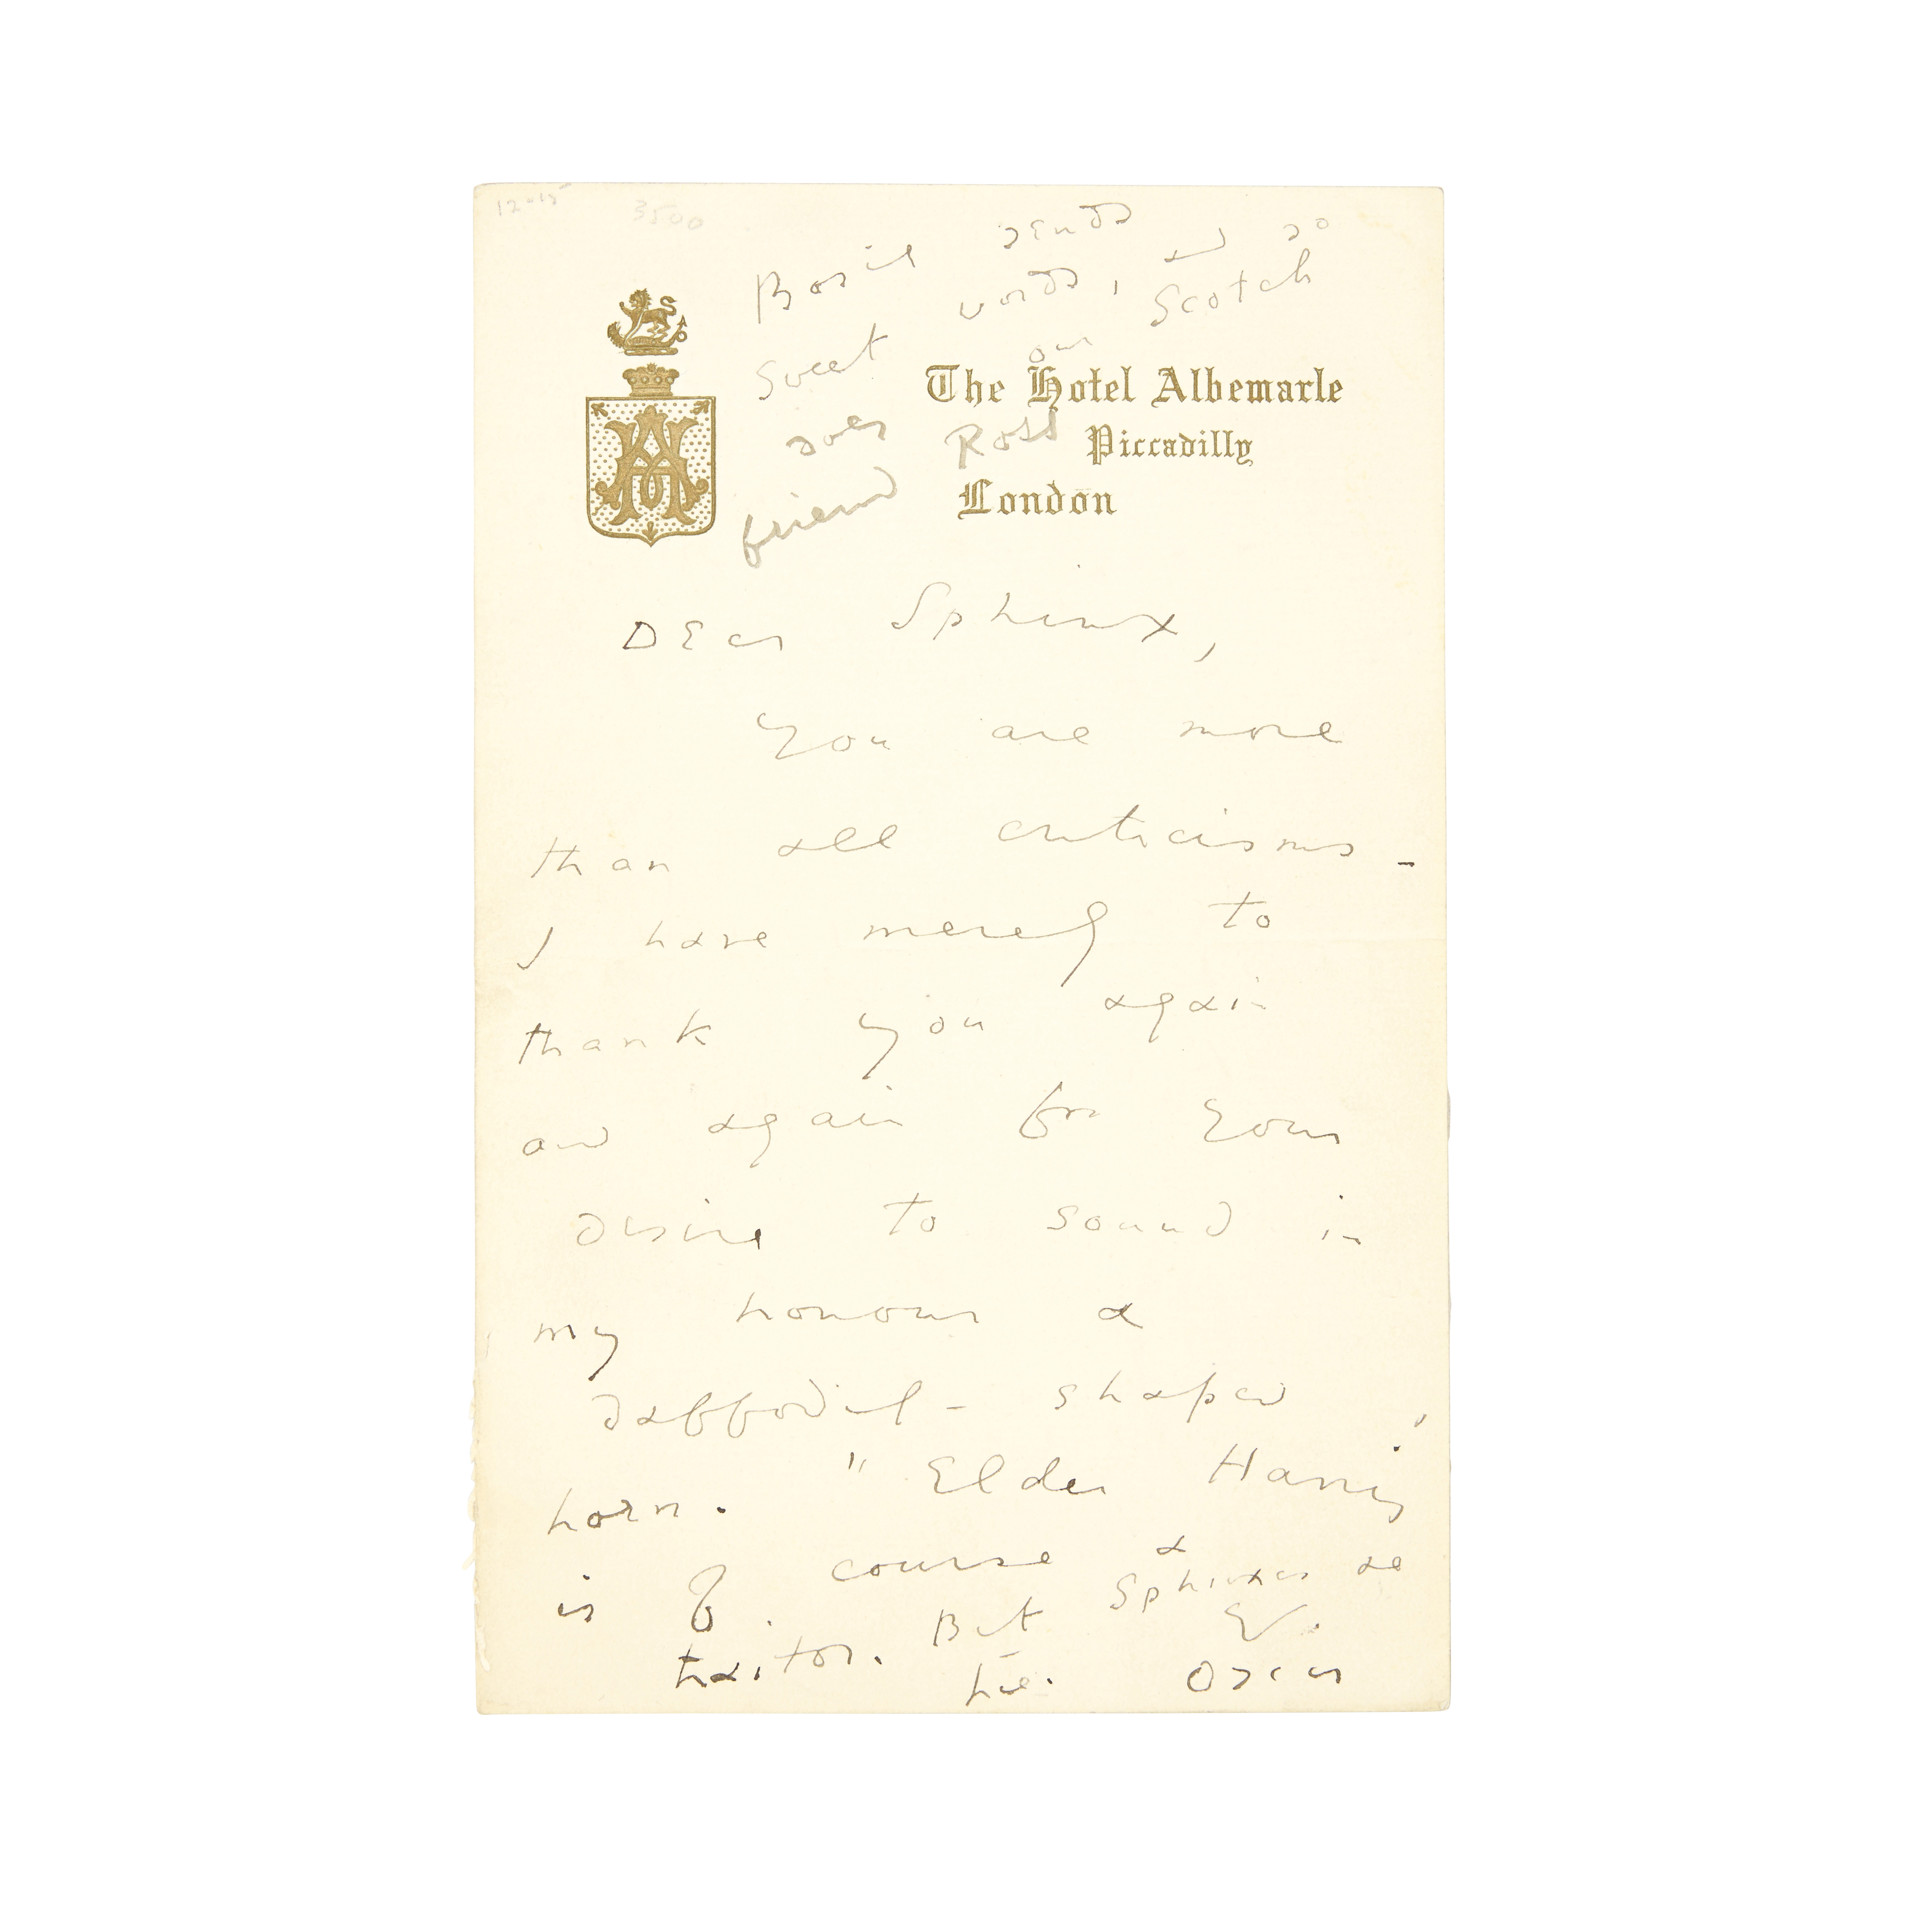 12-15
3500
Basil sends
sweet words, and so
does our Scotch
friend Ross
The Hotel Albemarle
Piccadilly
London
Dear Sphinx,
You are more
than all criticisms -
I have merely to
thank you again
and again for your
desire to sound in
my honour a
daffodil - shaped
horn. "Elder Harris'
is of course a
traitor. But Sphinxes are
true. Ev.
Oscar